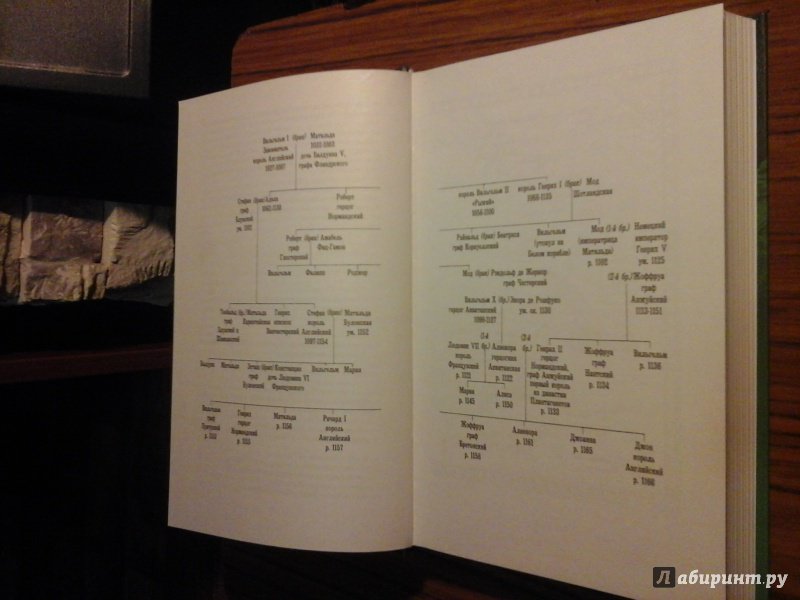 Вильгельм I (брак) Матильда
Завоеватель 1032-1083
король Английский дочь Болдуина V,
1027-1087 графа Фландрского
Стефан (брак) Адель
граф 1062-1138
Блуаский
ум. 1102
Роберт
герцог
Нормандский
Роберт (брак) Амабель
граф Фиц-Гамон
Глостерский
Вильгельм Филипп Роджер
Теобальд (бр.) Матильда
граф Каринтийская
Блуаский и
Шампанский
Генрих
епископ
Винчестерский
Стефан (брак) Матильда
король Булонская
Английский ум. 1152
1097-1154
Болдуин Матильда
Эсташ (брак) Констанция
граф дочь Людовика VI
Булонский Французского
Вильгельм Мария
Вильгельм
граф
р.
Генрих
герцог
Нормандский
р. 1155
Матильда
р. 1156
Ричард I
король
Английский
р. 1157
король Вильгельм II
«Рыжий»
1056-1100
король Генрих I (брак) Мод
1068-1135 Шотландская
Рейнальд (брак) Беатриса
граф Корнуэллский
Вильгельм
(утонул на
Белом корабле)
Мод (1-й бр.) Немецкий
(императрица император
Матильда) Генрих V
р. 1102 ум. 1125
Мод (брак) Рэндольф де Жернор
граф Честерский
(2-й бр.) Жоффруа
граф
Анжуйский
1113-1151
Вильгельм X (бр.) Энора де Родфуко
герцог Аквитанский ум. ок. 1130
1099-1137
(1-й (2-й
Людовик VII бр.) Алиенора бр.) Генрих II
король герцогиня герцог
Французский Аквитанская Нормандский,
р. 1121 р. 1122 граф Анжуйский
первый король
из династии
Плантагенетов
р. 1133
Жоффруа
граф
Нантский
р. 1134
Вильгельм
р. 1136
Мария
р. 1145
Алиса
р. 1150
Жоффруа
граф
Бретонский
р. 1158
Алиенора
р. 1161
Джоанна
р. 1165
Джон
король
Английский
р. 1166
Лабиринт.ру